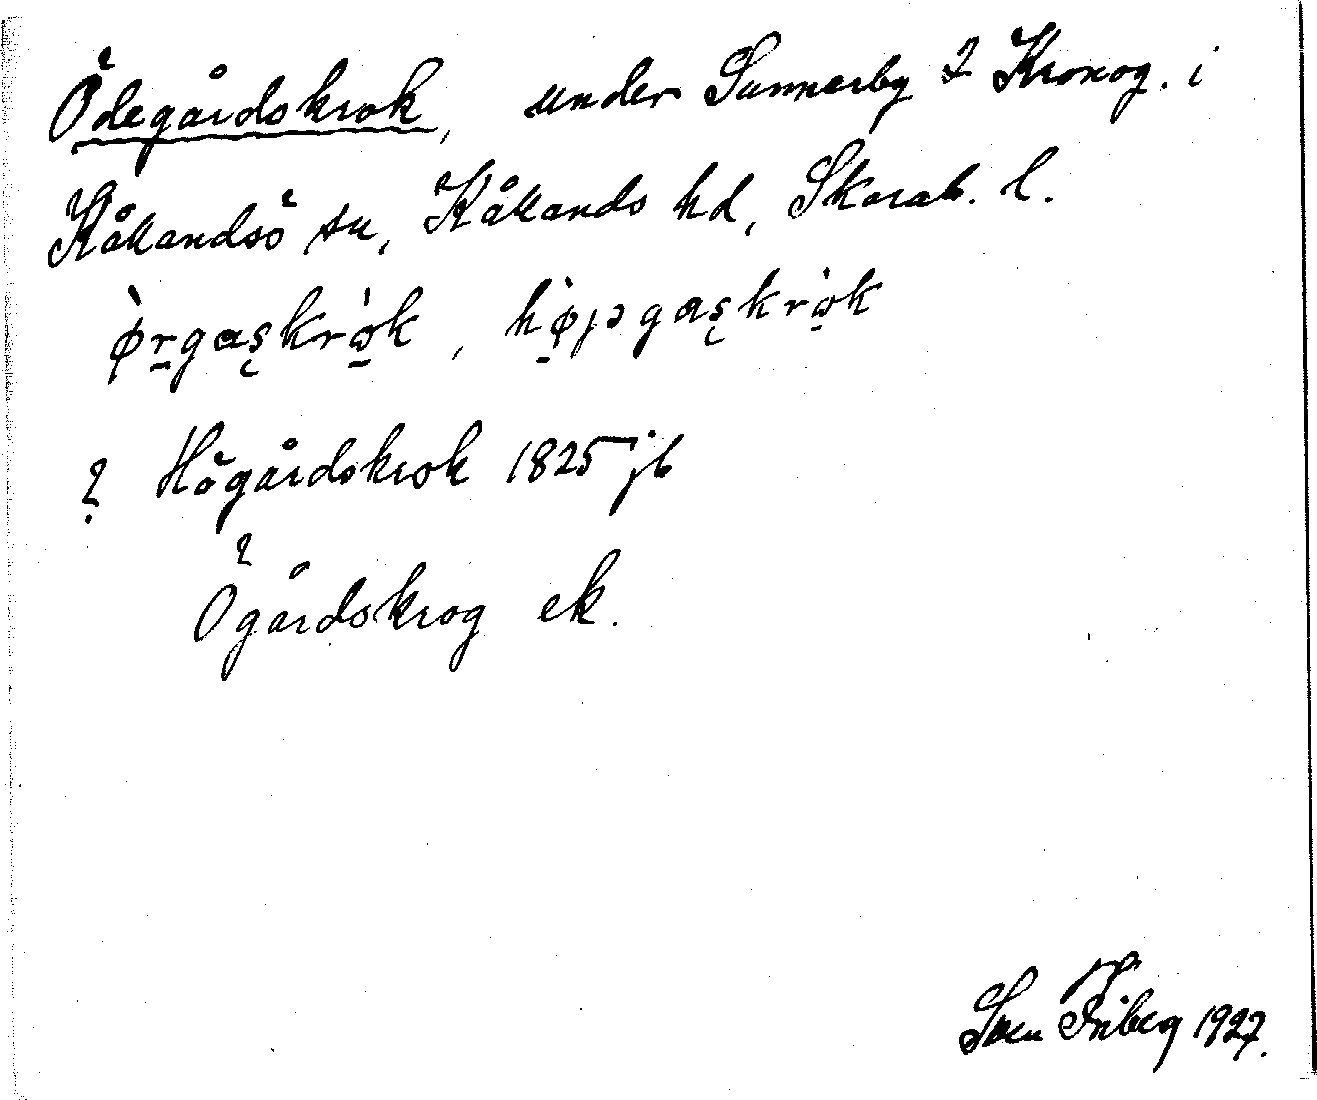 Ödegårdskrok, under Sunnerby 2 Kronog. i
Kållandsö sn, Kållands hd, Skarab. l.
? Högårdskrok 1825 jb
Ögårdskrog ek.
Sven Friberg 1927.